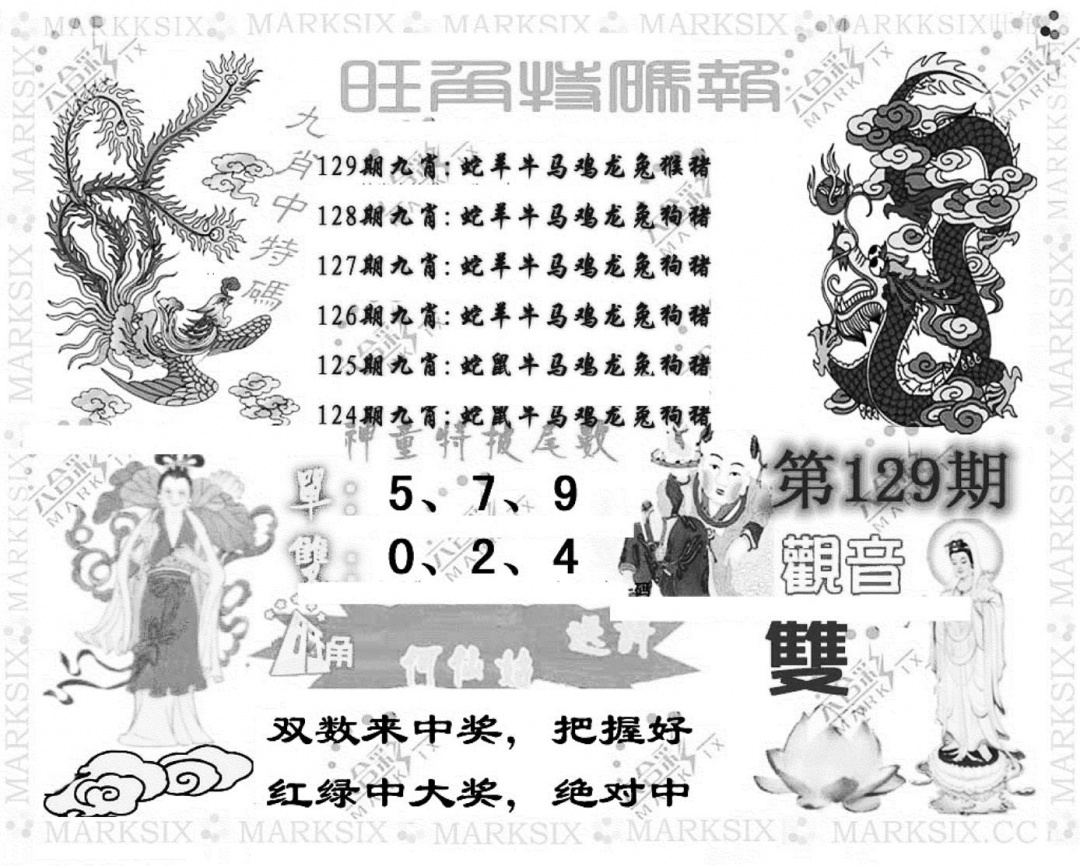 MARKKSIX MARKKSIX MARKSIX MARKKSIX MARKKSIX
旺角特碼報
九肖中特碼
129期九肖:蛇羊牛马鸡龙兔猴猪
128期九肖:蛇羊牛马鸡龙兔狗猪
127期九肖:蛇羊牛马鸡龙兔狗猪
126期九肖:蛇羊牛马鸡龙兔狗猪
125期九肖:蛇鼠牛马鸡龙兔狗猪
124期九肖:蛇鼠牛马鸡龙兔狗猪
神童特报尾数
單：5、7、9
雙：0、2、4
第129期
觀音
雙
旺角
何仙姑
双数来中奖，把握好
红绿中大奖，绝对中
MARKSIX MARKSIX MARKSIX MARKSIX MARKSIX.CC